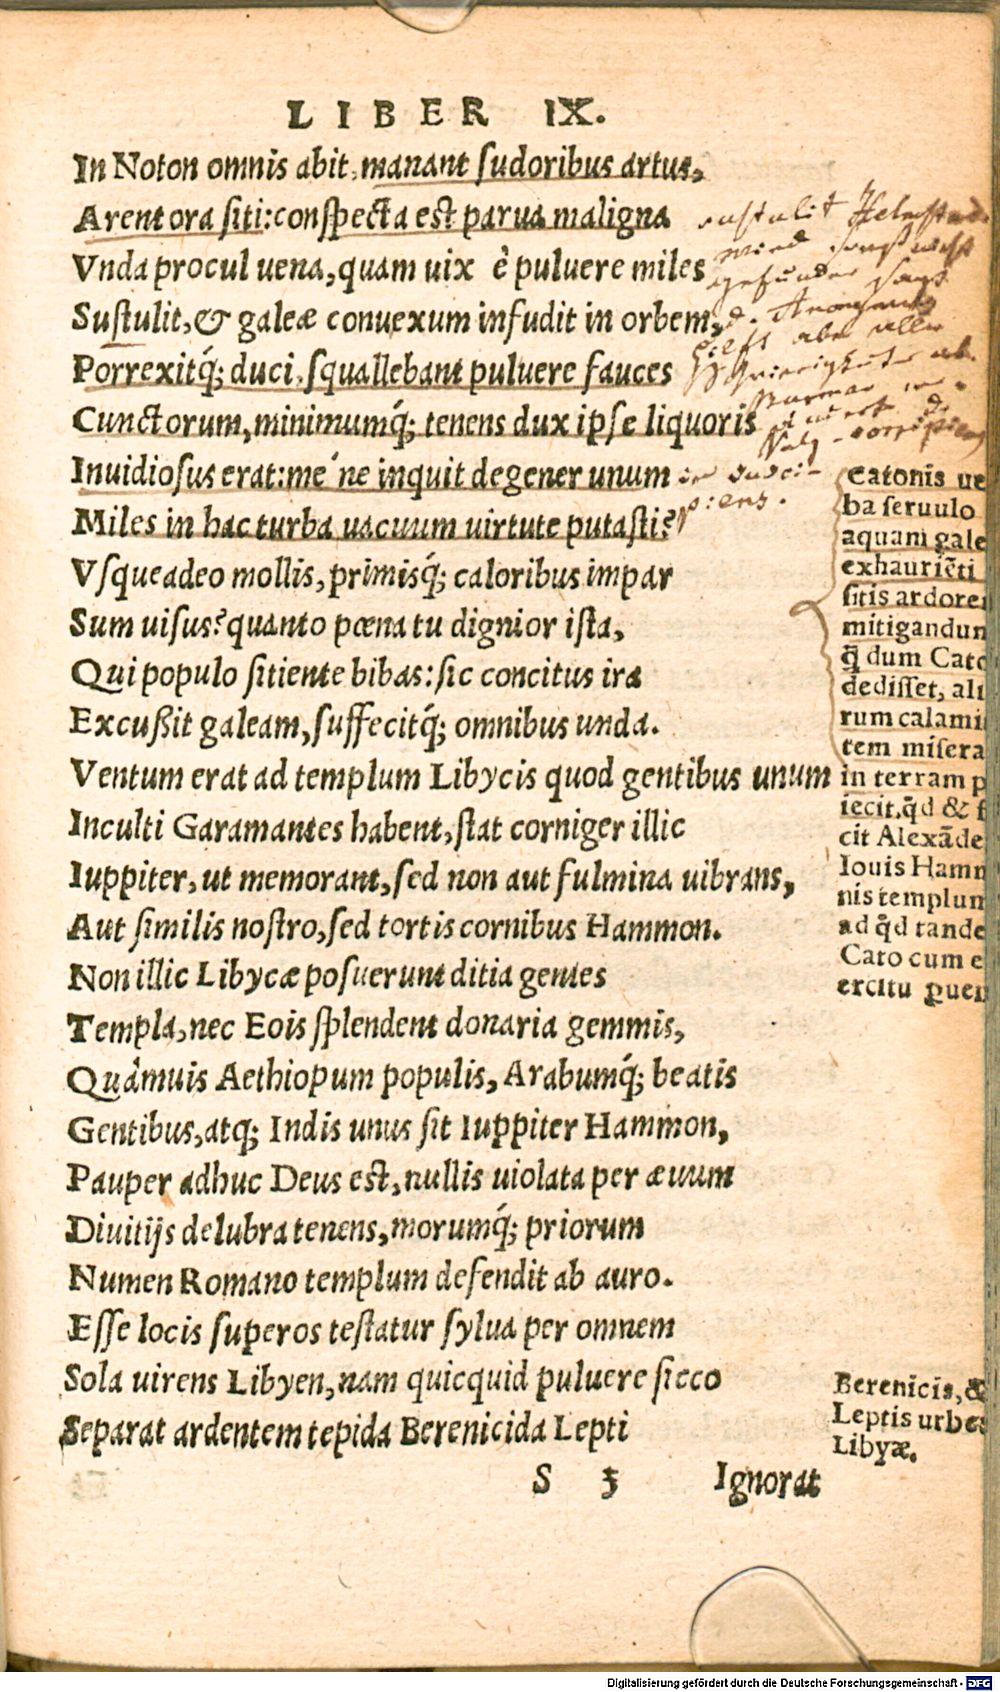 LIBER IX.
In Noton omnis abit, manant sudoribus artus,
Arent ora siti: conspecta est parua maligna
Vnda procul uena, quam uix è puluere miles
Sustulit, & galeæ conuexum infudit in orbem,
Porrexitq́; duci, squallebant puluere fauces
Cunctorum, minimumq́; tenens dux ipse liquoris
Inuidiosus erat: me ne inquit degener unum
Miles in hac turba uacuum uirtute putasti?
Vsque adeo mollis, primisq́; caloribus impar
Sum uisus? quanto pœna tu dignior ista,
Qui populo sitiente bibas: sic concitus ira
Excußit galeam, suffecitq́; omnibus unda.
Ventum erat ad templum Libycis quod gentibus unum
Inculti Garamantes habent, stat corniger illic
Iuppiter, ut memorant, sed non aut fulmina uibrans,
Aut similis nostro, sed tortis cornibus Hammon.
Non illic Libycæ posuerunt ditia gentes
Templa, nec Eois splendent donaria gemmis,
Quàmuis Aethiopum populis, Arabumq́; beatis
Gentibus, atq; Indis unus sit Iuppiter Hammon,
Pauper adhuc Deus est, nullis uiolata per æuum
Diuitijs delubra tenens, morumq́; priorum
Numen Romano templum defendit ab auro.
Esse locis superos testatur sylua per omnem
Sola uirens Libyen, nam quicquid puluere sicco
Separat ardentem tepida Berenicida Lepti
S 3 Ignorat
sustulit
wird sonst nicht
gefunden sagt
Catonis ue
ba seruulo
aquam gale
exhauriẽti
sitis ardorem
mitigandum
q̃ dum Cato
dedisset, ali
rum calami
tem misera
in terram p
iecit, q̃d & f
cit Alexãde
Iouis Hamm
nis templum
ad q̃d tande
Cato cum e
ercitu ꝑuen
Berenicis, &
Leptis urbes
Libyæ.
Digitalisierung gefördert durch die Deutsche Forschungsgemeinschaft - DFG